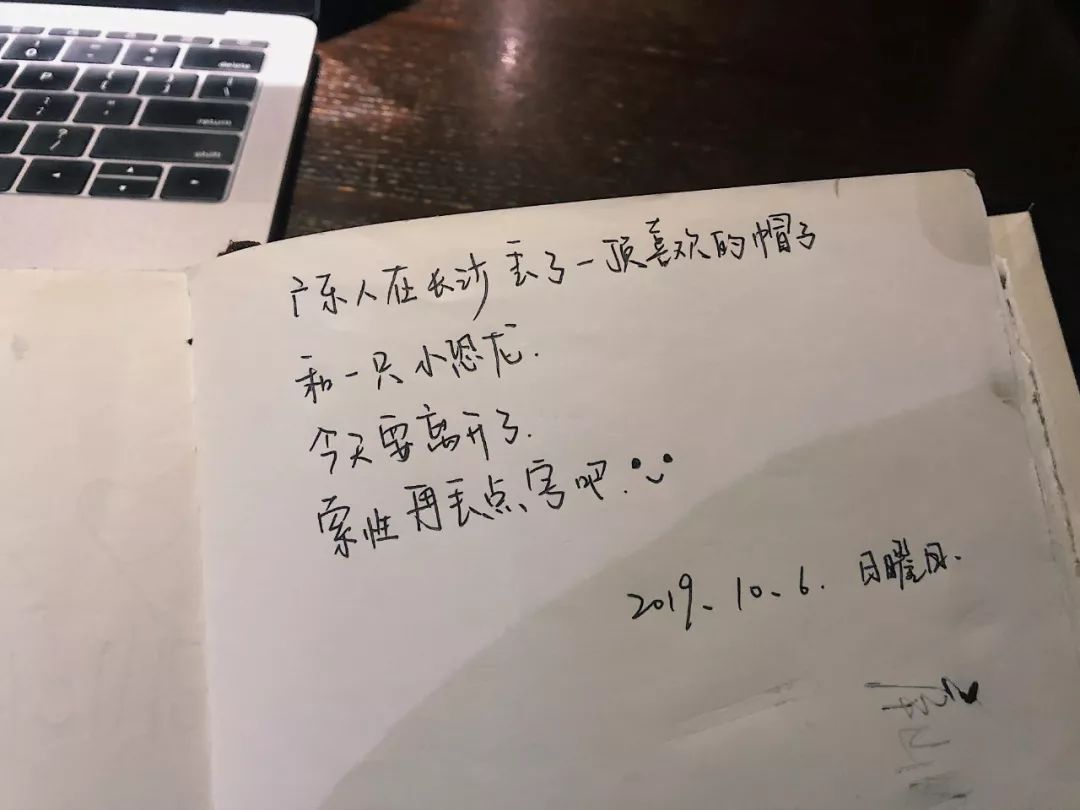 delete
return
shift
广东人在长沙丢了一顶喜欢的帽子
和一只小恐龙.
今天要离开了.
索性再丢点字吧.
2019、10、6. 日曜日.